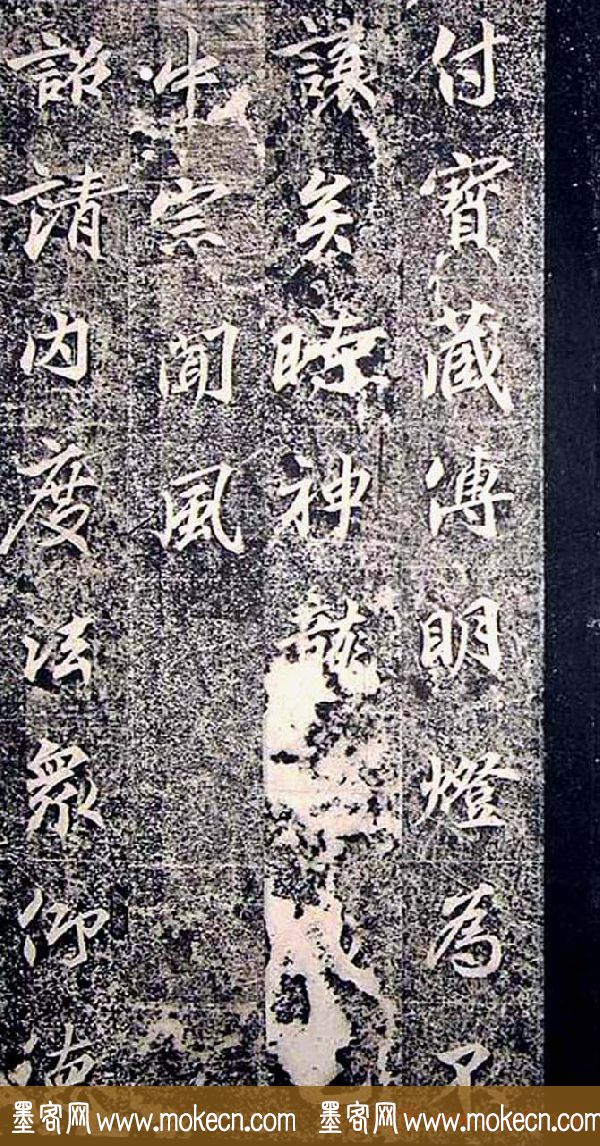 付寶藏傳明燈為
讓矣神龍
中宗聞風
詔請內度法眾仰德
墨客网 www.mokecn.com 墨客网 www.mokecn.com